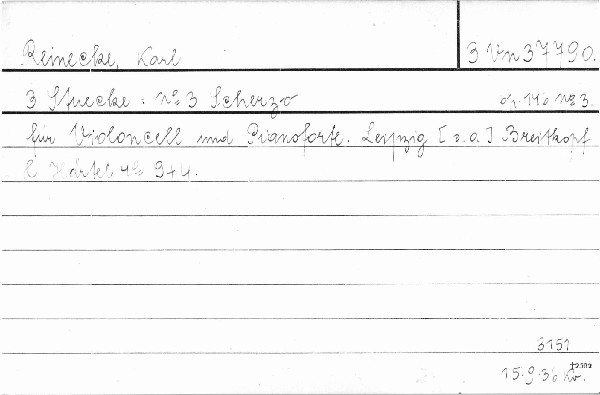 Reinecke, Karl 3 Vn 37790.
3 Stuecke: No 3 Scherzo op. 146 No 3.
für Violoncell und Pianoforte. Leipzig [o. a.] Breitkopf
& Härtel 4° 9+4.
3151
15.9.36 Kv.